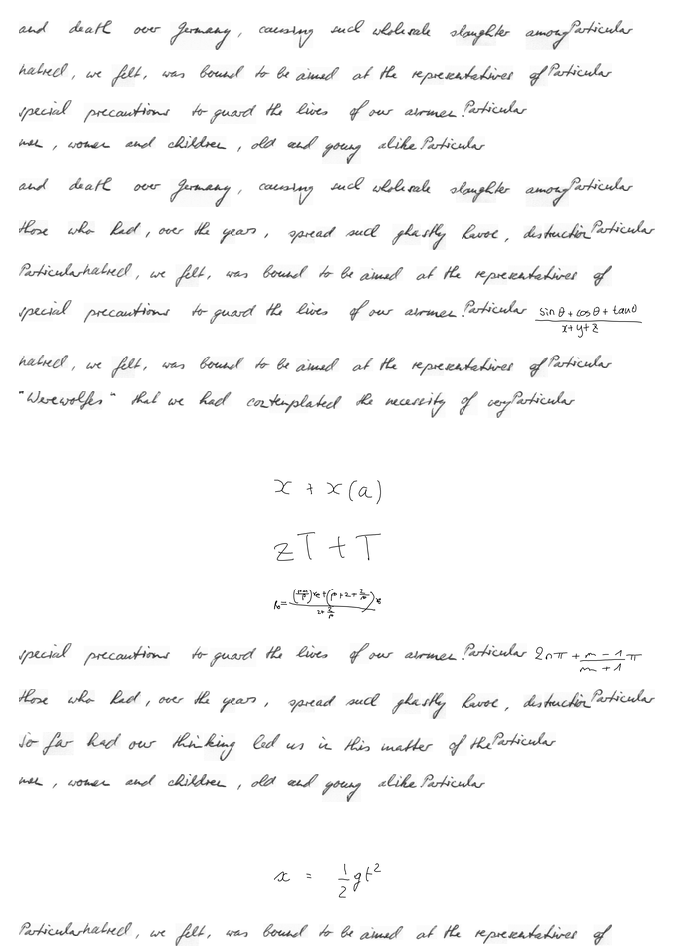 and death over Germany, causing such wholesale slaughter among Particular
hatred, we felt, was bound to be aimed at the representatives of Particular
special precautions to guard the lives of our airmen. Particular
men, women and children, old and young alike Particular
and death over Germany, causing such wholesale slaughter among Particular
those who had, over the years, spread such ghastly havoc, destruction Particular
Particular hatred, we felt, was bound to be aimed at the representatives of
special precautions to guard the lives of our airmen. Particular \frac{\sin\theta + \cos\theta + \tan\theta}{x+y+z}
hatred, we felt, was bound to be aimed at the representatives of Particular
"Werewolfes" that we had contemplated the necessity of very Particular
x + x(a)
zT + T
special precautions to guard the lives of our airmen. Particular 2n\pi + \frac{m-1}{m+1}\pi
those who had, over the years, spread such ghastly havoc, destruction Particular
So far had our thinking led us in this matter of the Particular
men, women and children, old and young alike Particular
x = \frac{1}{2}gt^2
Particular hatred, we felt, was bound to be aimed at the representatives of